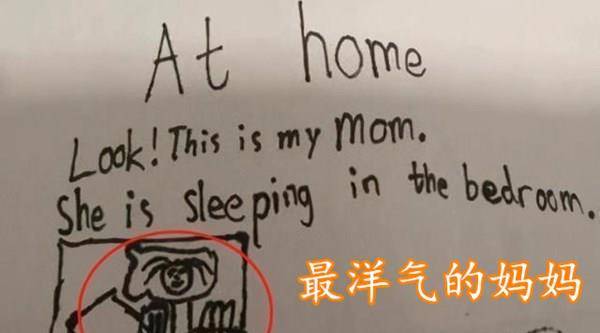 At home
Look! This is my Mom.
She is sleeping in the bedroom.
最洋气的妈妈